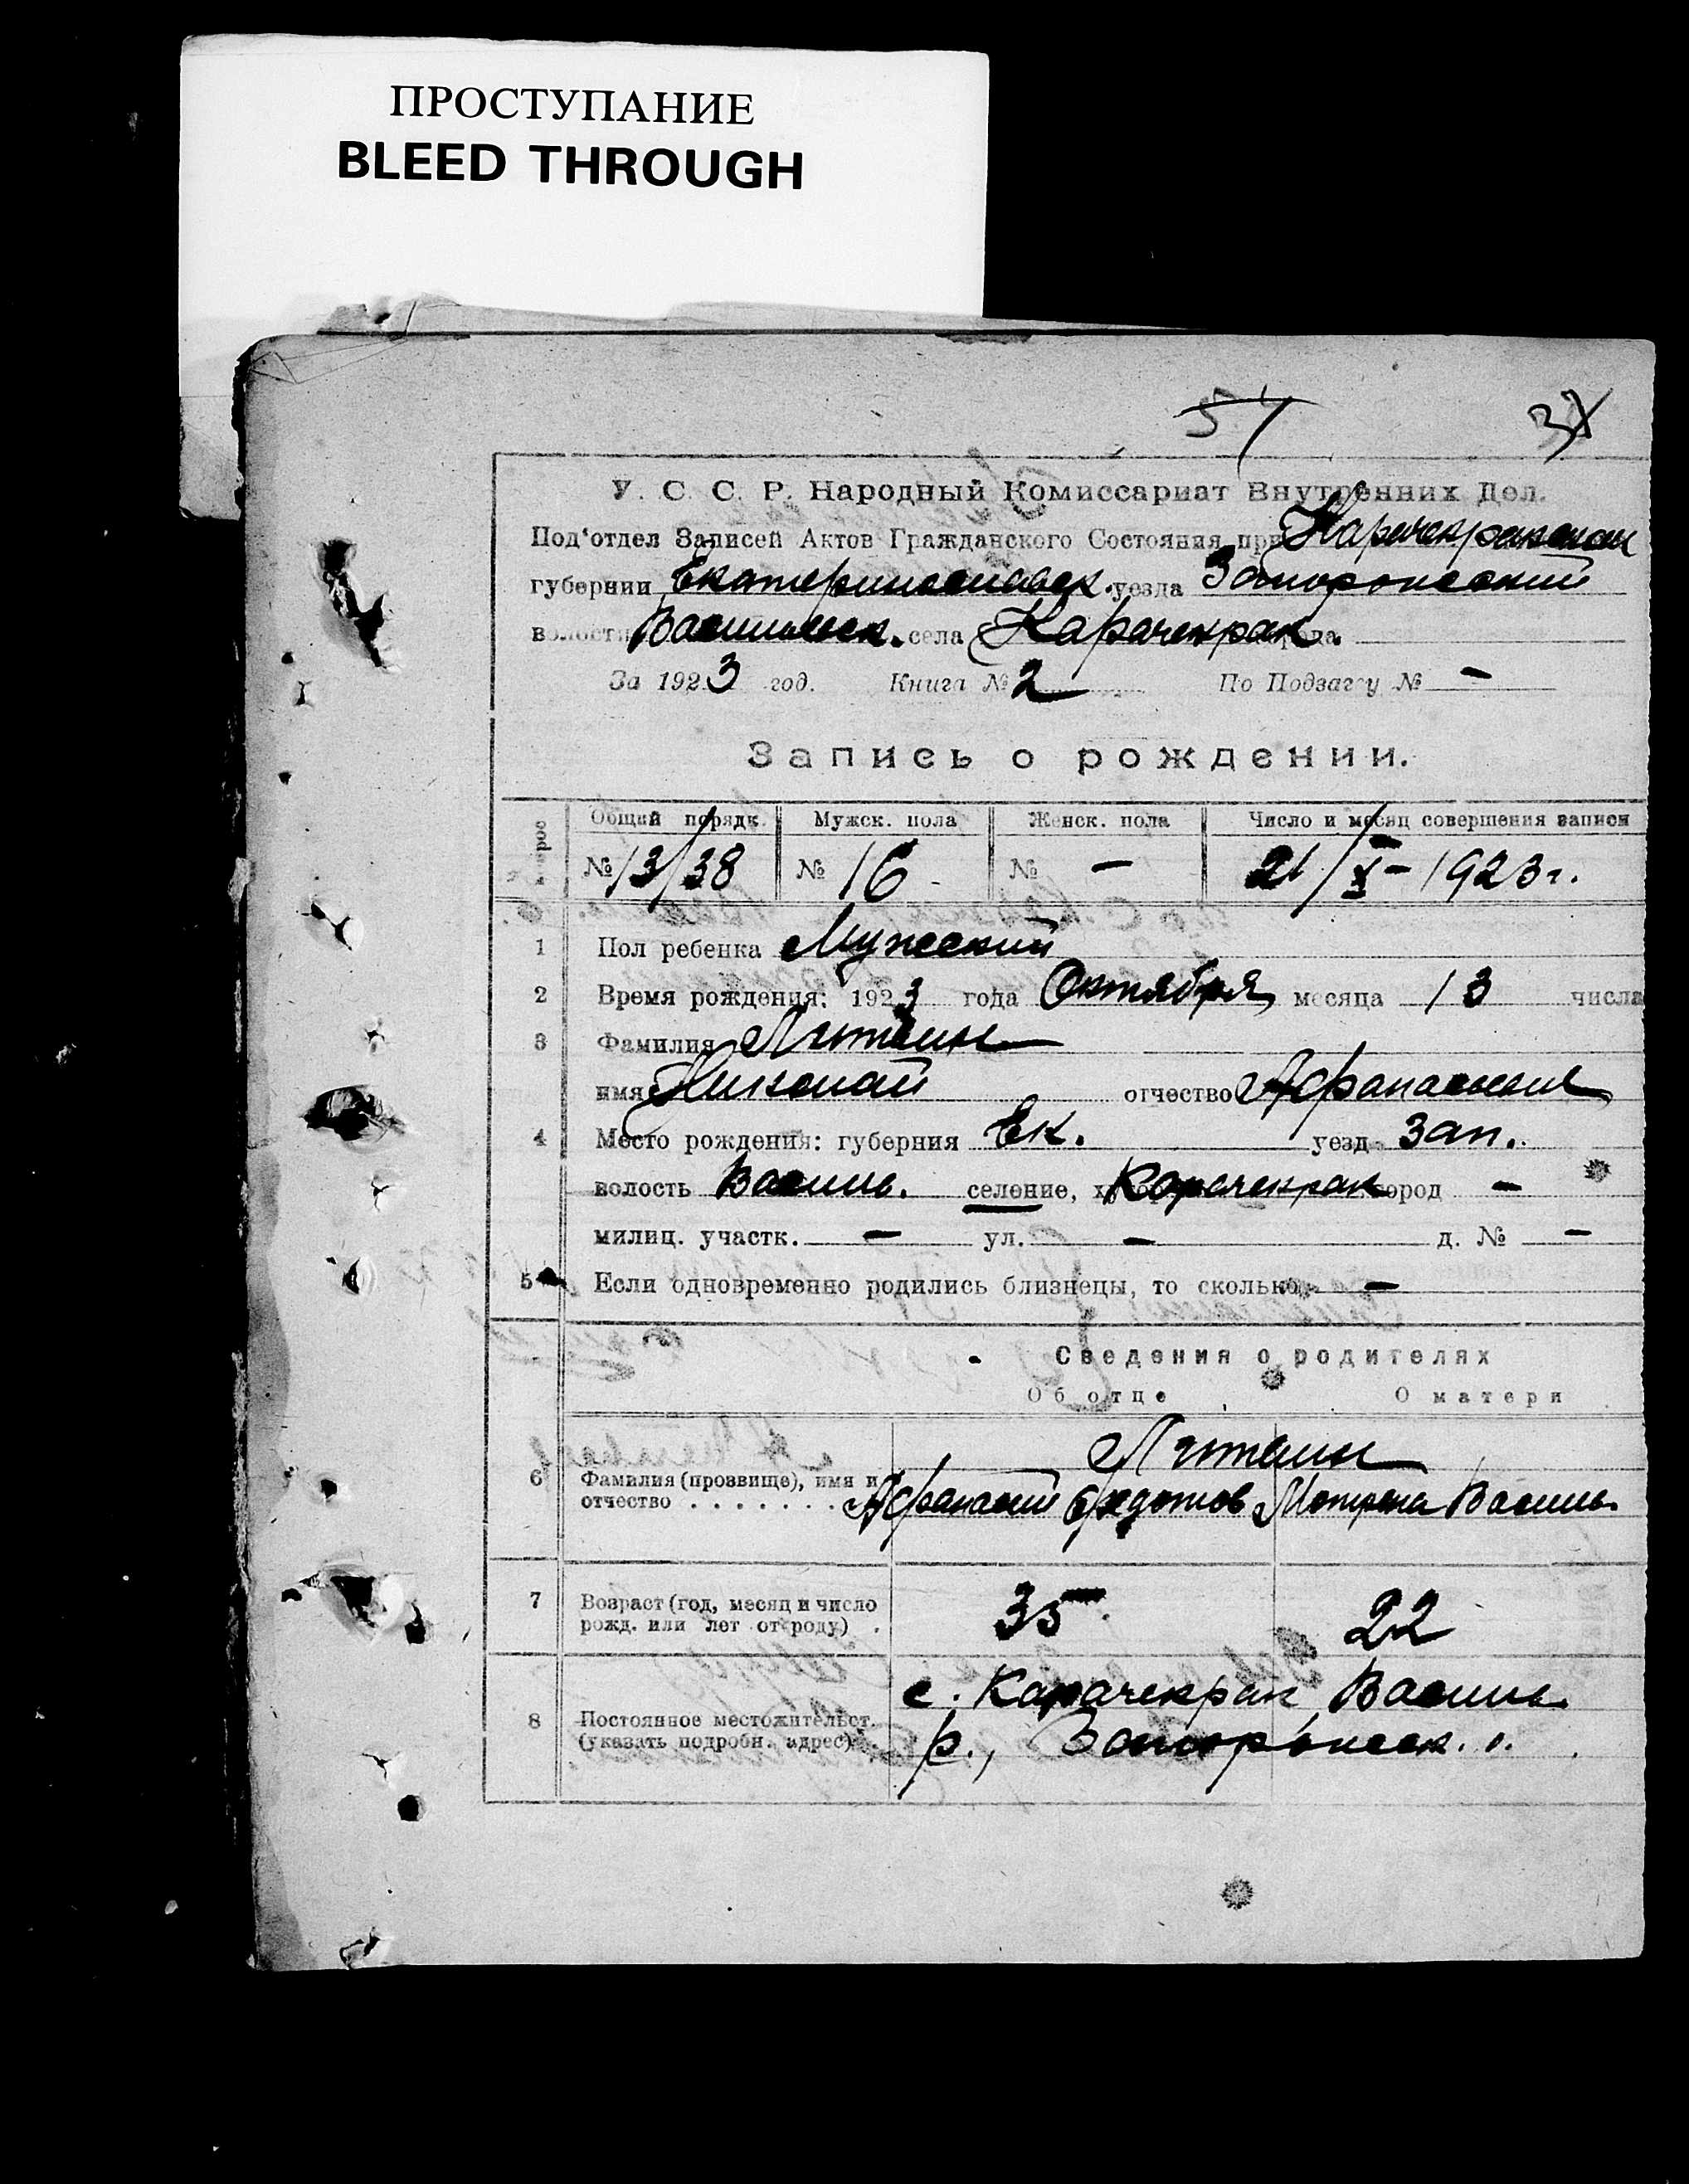 ПРОСТУПАНИЕ
BLEED THROUGH
54 3
У. С. С. Р. Народный Комиссариат Внутренних Дел.
Под‘отдел Записей Актов Гражданского Состояния при Карачекракском
губернии Екатеринославск. уезда Запорожский
волости Васильевск. села Карачекрак. города
За 1923 год. Книга № 2 По Подзагсу № —
Запись о рождении.
Общий порядк. Мужск. пола Женск. пола Число и месяц совершения записи
№ 13/38 № 16 № — 21/X – 1923 г.
1 Пол ребенка Мужеский
2 Время рождения: 1923 года Октября месяца 13 числа
3 Фамилия
имя Николай отчество Афанасьевич
4 Место рождения: губерния Ек. уезд Зап.
волость Василь. селение, Карачекрак город —
милиц. участк. — ул. — д. № —
5 Если одновременно родились близнецы, то сколько —
Сведения о родителях
Об отце О матери
6 Фамилия (прозвище), имя и
отчество . . . . . . . Афанасий Федотов Мотрена Василь.
7 Возраст (год, месяц и число
рожд. или лет от роду) . 35 22
8 Постоянное местожительст.
(указать подробн. адрес) . с. Карачекрак Василь.
р., Запорожск. о.